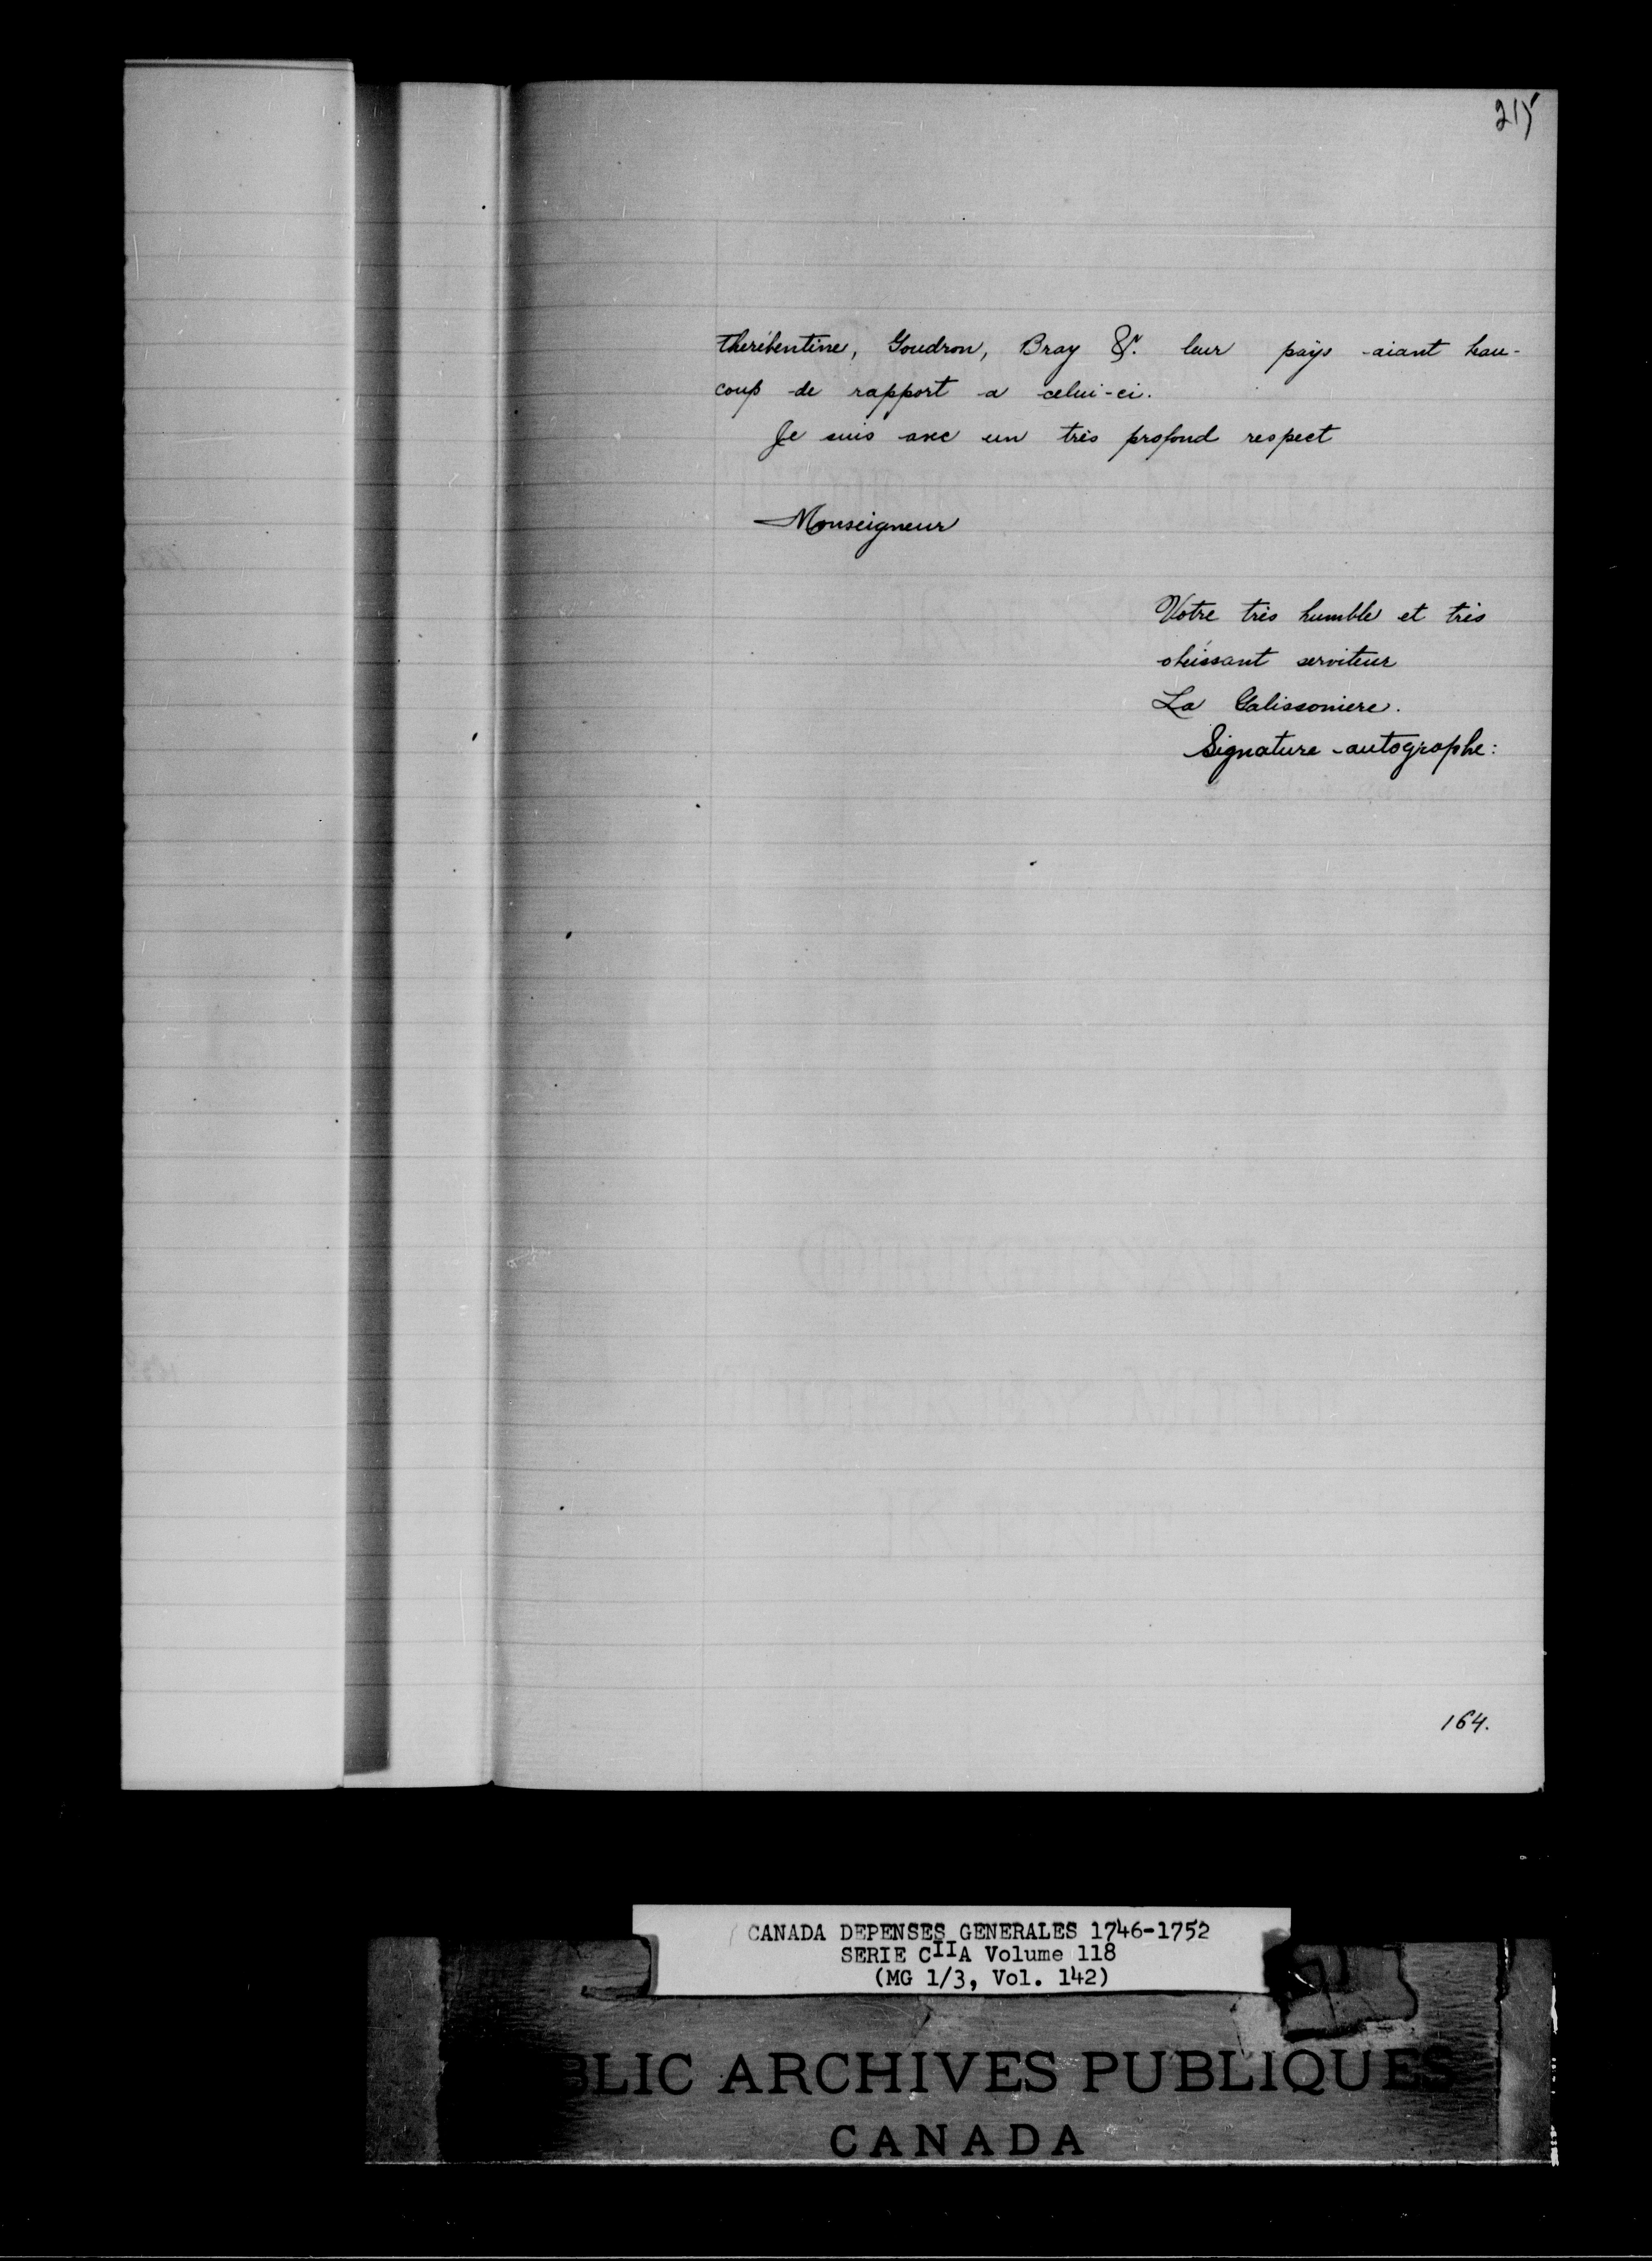 215
thérébentine, Goudron, Bray &ca. leur païs aiant beau-
coup de rapport a celui-ci.
Je suis avec un très profond respect
Monseigneur
Votre très humble et très
obéissant serviteur
La Galissoniere.
Signature autographe:
164.
CANADA DEPENSES GENERALES 1746-1752
SERIE CIIA Volume 118
(MG 1/3, Vol. 142)
BLIC ARCHIVES PUBLIQUES
CANADA